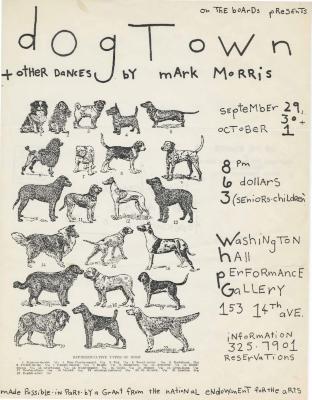 on THE boARDs pResENTs
dogTown
+ oTHER DANCEs by mARK moRRIs
sepTembER 29,
30 +
ocTobER 1
8 pm
6 doLLARs
3 (seniors-children)
WAsHingTon
hALL
pERFoRmANCE
gALLERy
153 14TH AVE.
inFoRmATion
325.7901
REsERVATions
REPRESENTATIVE TYPES OF DOGS
mADE possibLE in pART by A gRANT fRom THE nATionAL EndowmENT foR THE ARTs